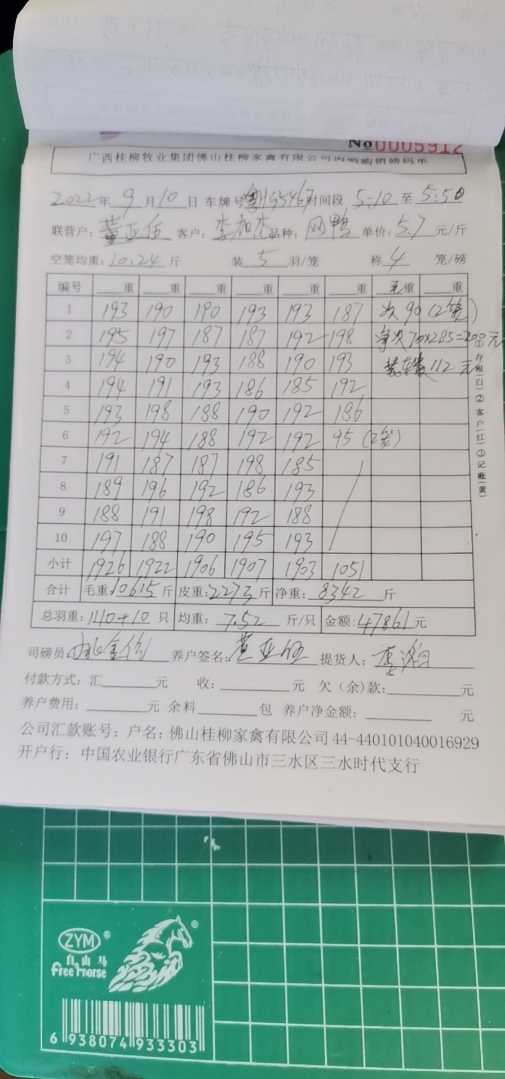 No 0005912
广西桂柳牧业集团佛山桂柳家禽有限公司肉鸭购销磅码单
2022年 9月10日 车牌号 时间段 5:10 至 5:50
联营户: 客户: 品种: 肉鸭 单价: 5.7 元/斤
空笼均重: 10.24 斤 装 5 羽/笼 称 4 笼/磅
编号 重 重 重 重 重 重 毛重 重
1 193 190 190 193 193 187 次 90 (2笼)
2 195 197 187 187 192 198 70×2.85= 元
3 194 190 193 188 190 193 112元
4 194 191 193 186 185 192
5 193 198 188 190 192 186
6 192 194 188 192 192 95 (2笼)
7 191 187 187 198 185
8 189 196 192 186 193
9 188 191 198 192 188
10 197 188 190 195 193
小计 1926 1922 1906 1907 1903 1051
合计 毛重: 10615 斤 皮重: 2273 斤 净重: 8342 斤
总羽重: 1110+10 只 均重: 7.52 斤/只 金额: 47861 元
司磅员: 养户签名: 提货人:
付款方式: 汇 元 收: 元 欠(余)款: 元
养户费用: 元 余料 包 养户净金额: 元
公司汇款账号: 户名: 佛山桂柳家禽有限公司 44-440101040016929
开户行: 中国农业银行广东省佛山市三水区三水时代支行
②客户(红)③记账(黄)
ZYM®
自由马
Free Horse
6 938074 933303